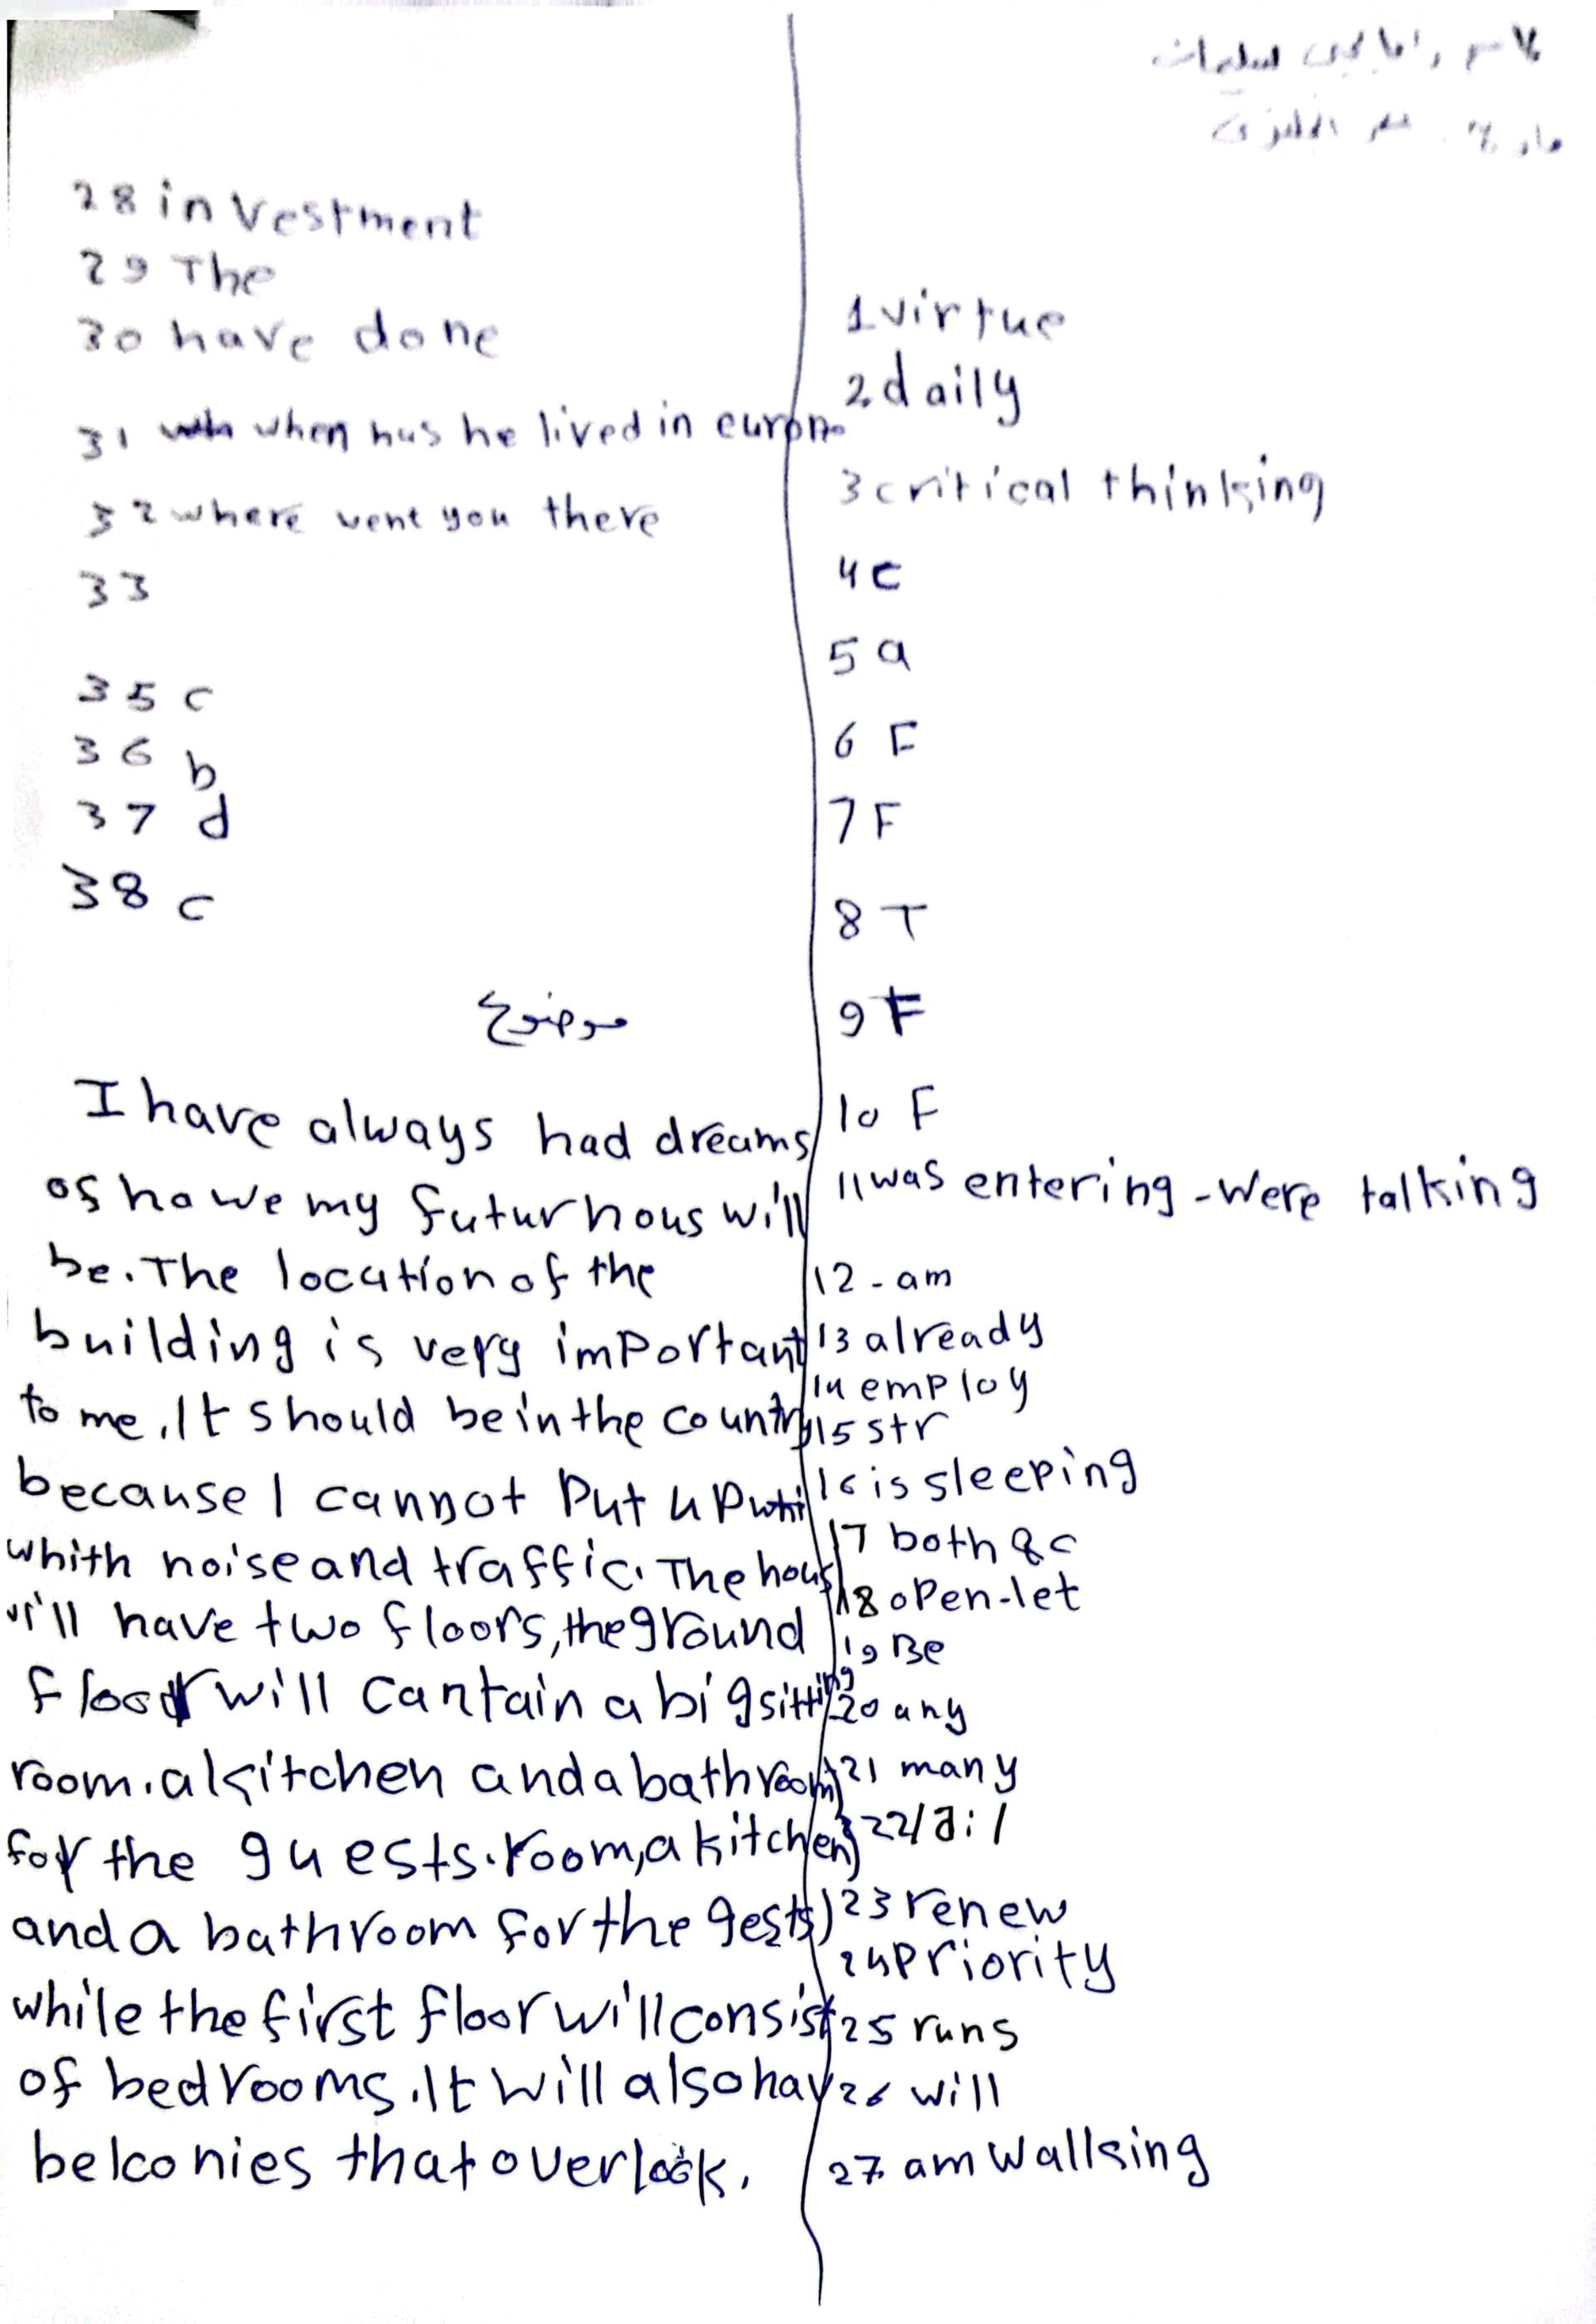 28 investment
29 The
30 have done
31 when has he lived in
32 where went you there
33
35 c
36 b
37 d
38 c
موضوع
I have always had dreams
of howe my futur hous will
be. The location of the
building is very important
to me. It should be in the country
because I cannot put up
whith noise and traffic. The hous
will have two floors, the ground
floor will cantain a big sitting
room. a kitchen and a bathroom
for the guests. room, a kitchen
and a bathroom for the gests)
while the first floor will consist
of bedrooms. It will also hav
belconies that overlook.
1 virtue
2 daily
3 critical thinking
4 c
5 a
6 F
7 F
8 T
9 F
10 F
11 was entering - were talking
12 - am
13 already
14 employ
15 str
16 is sleeping
17 both & c
18 open - let
19 Be
20 any
21 many
22
23 renew
24 priority
25 runs
26 will
27 am walking